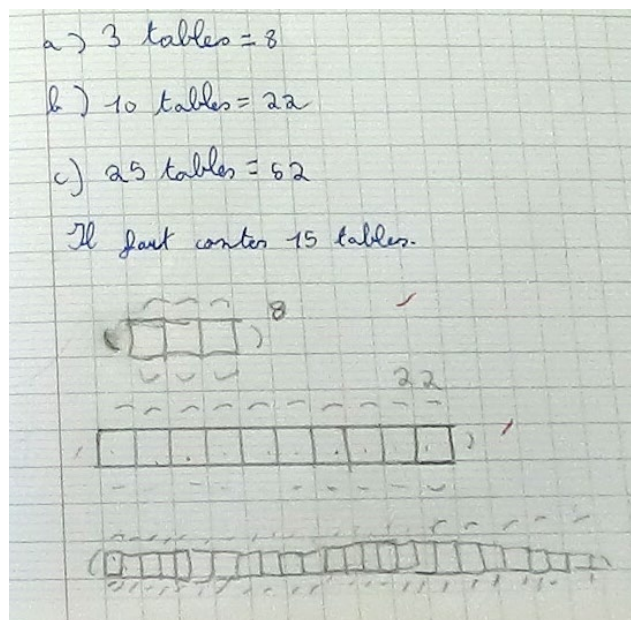 a) 3 tables = 8
b) 10 tables = 22
c) 25 tables = 52
Il faut conter 15 tables.
8
22